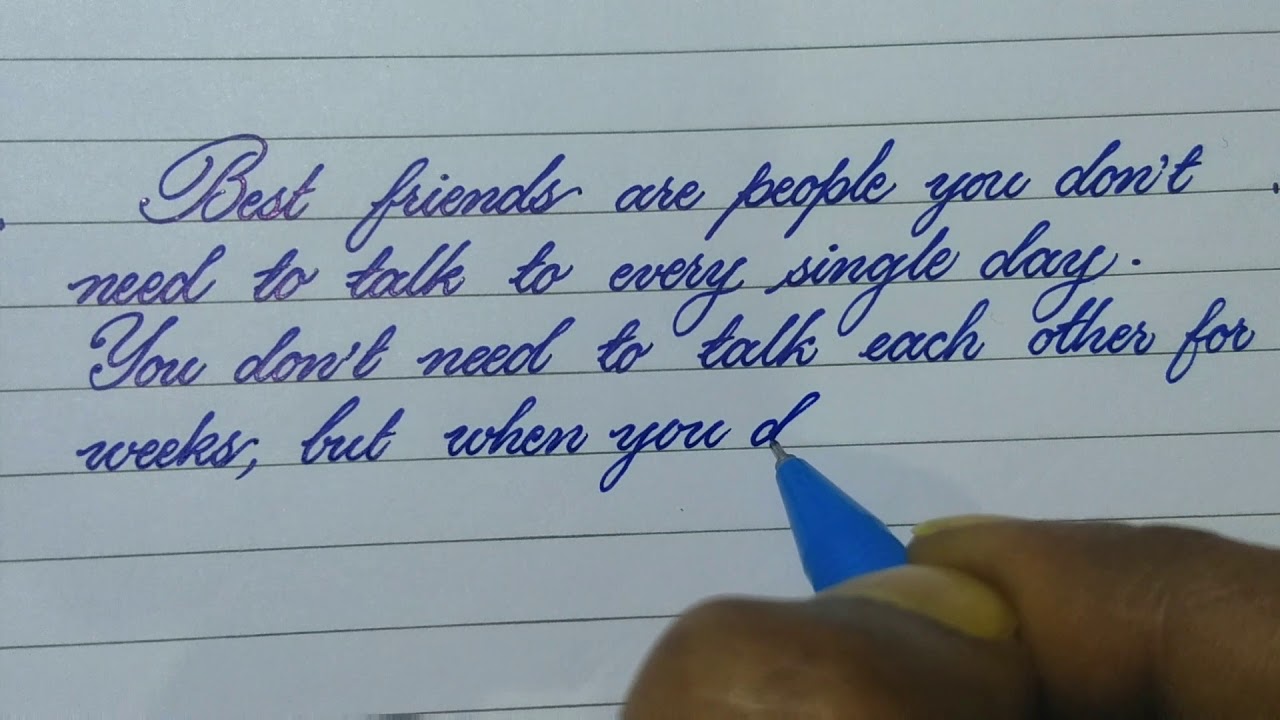 Best friends are people you don't
need to talk to every single day.
You don't need to talk each other for
weeks, but when you d